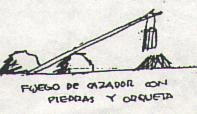 FUEGO DE CAZADOR CON
PIEDRAS Y ORQUETA